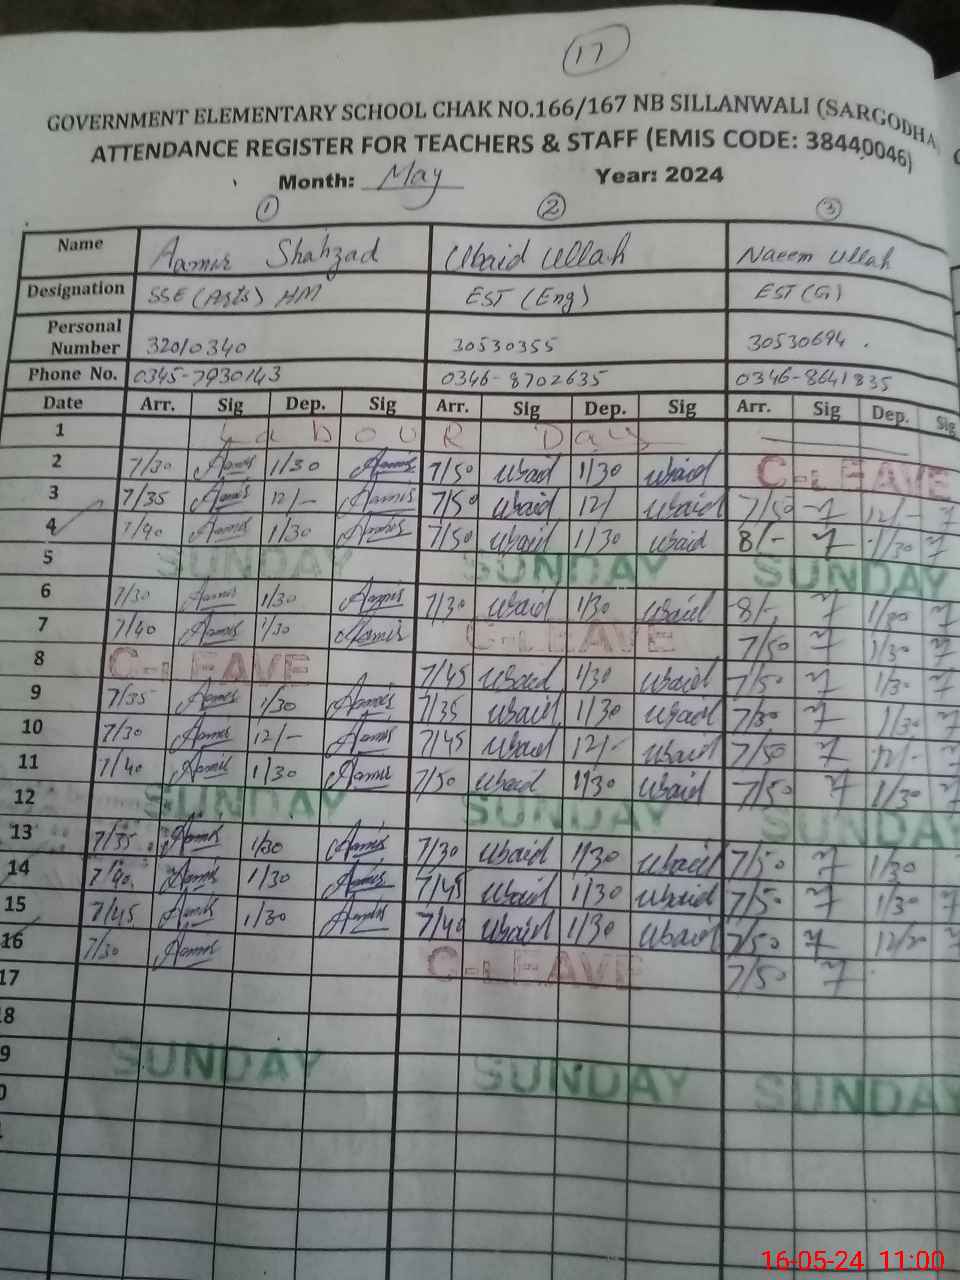 17
GOVERNMENT ELEMENTARY SCHOOL CHAK NO.166/167 NB SILLANWALI (SARGODHA
ATTENDANCE REGISTER FOR TEACHERS & STAFF (EMIS CODE: 38440046)
Month: May Year: 2024
1 2 3
Name Aamir Shahzad Ubaid Ullah Naeem Ullah
Designation SSE (Arts) HM EST (Eng) EST (G)
Personal Number 32010340 30530355 30530694
Phone No. 0345-7930143 0346-8702635 0346-8641835
Date Arr. Sig Dep. Sig Arr. Sig Dep. Sig Arr. Sig Dep. Sig
1 Labour Day
2 7/30 Aamir 1/30 Aamir 7/50 Ubaid 1/30 Ubaid C-LEAVE
3 7/35 Aamir 12/- Aamir 7/50 Ubaid 12/ Ubaid 7/50 12/-
4 7/40 Aamir 1/30 Aamir 7/50 Ubaid 1/30 Ubaid 8/- 1/30
5 SUNDAY SUNDAY SUNDAY
6 7/30 Aamir 1/30 Aamir 7/30 Ubaid 1/30 Ubaid 8/- 1/30
7 7/40 Aamir 1/30 Aamir C-LEAVE 7/50 1/30
8 C-LEAVE 7/45 Ubaid 1/30 Ubaid 7/50 1/30
9 7/35 Aamir 1/30 Aamir 7/35 Ubaid 1/30 Ubaid 7/30 1/30
10 7/30 Aamir 12/- Aamir 7/45 Ubaid 12/- Ubaid 7/50 12/-
11 7/40 Aamir 1/30 Aamir 7/50 Ubaid 1/30 Ubaid 7/50 1/30
12 SUNDAY SUNDAY SUNDAY
13 7/35 Aamir 1/30 Aamir 7/30 Ubaid 1/30 Ubaid 7/50 1/30
14 7/40 Aamir 1/30 Aamir 7/45 Ubaid 1/30 Ubaid 7/50 1/30
15 7/45 Aamir 1/30 Aamir 7/40 Ubaid 1/30 Ubaid 7/50
16 7/30 Aamir C-LEAVE 7/50
17
8
9 SUNDAY SUNDAY SUNDAY
0
16-05-24 11:00